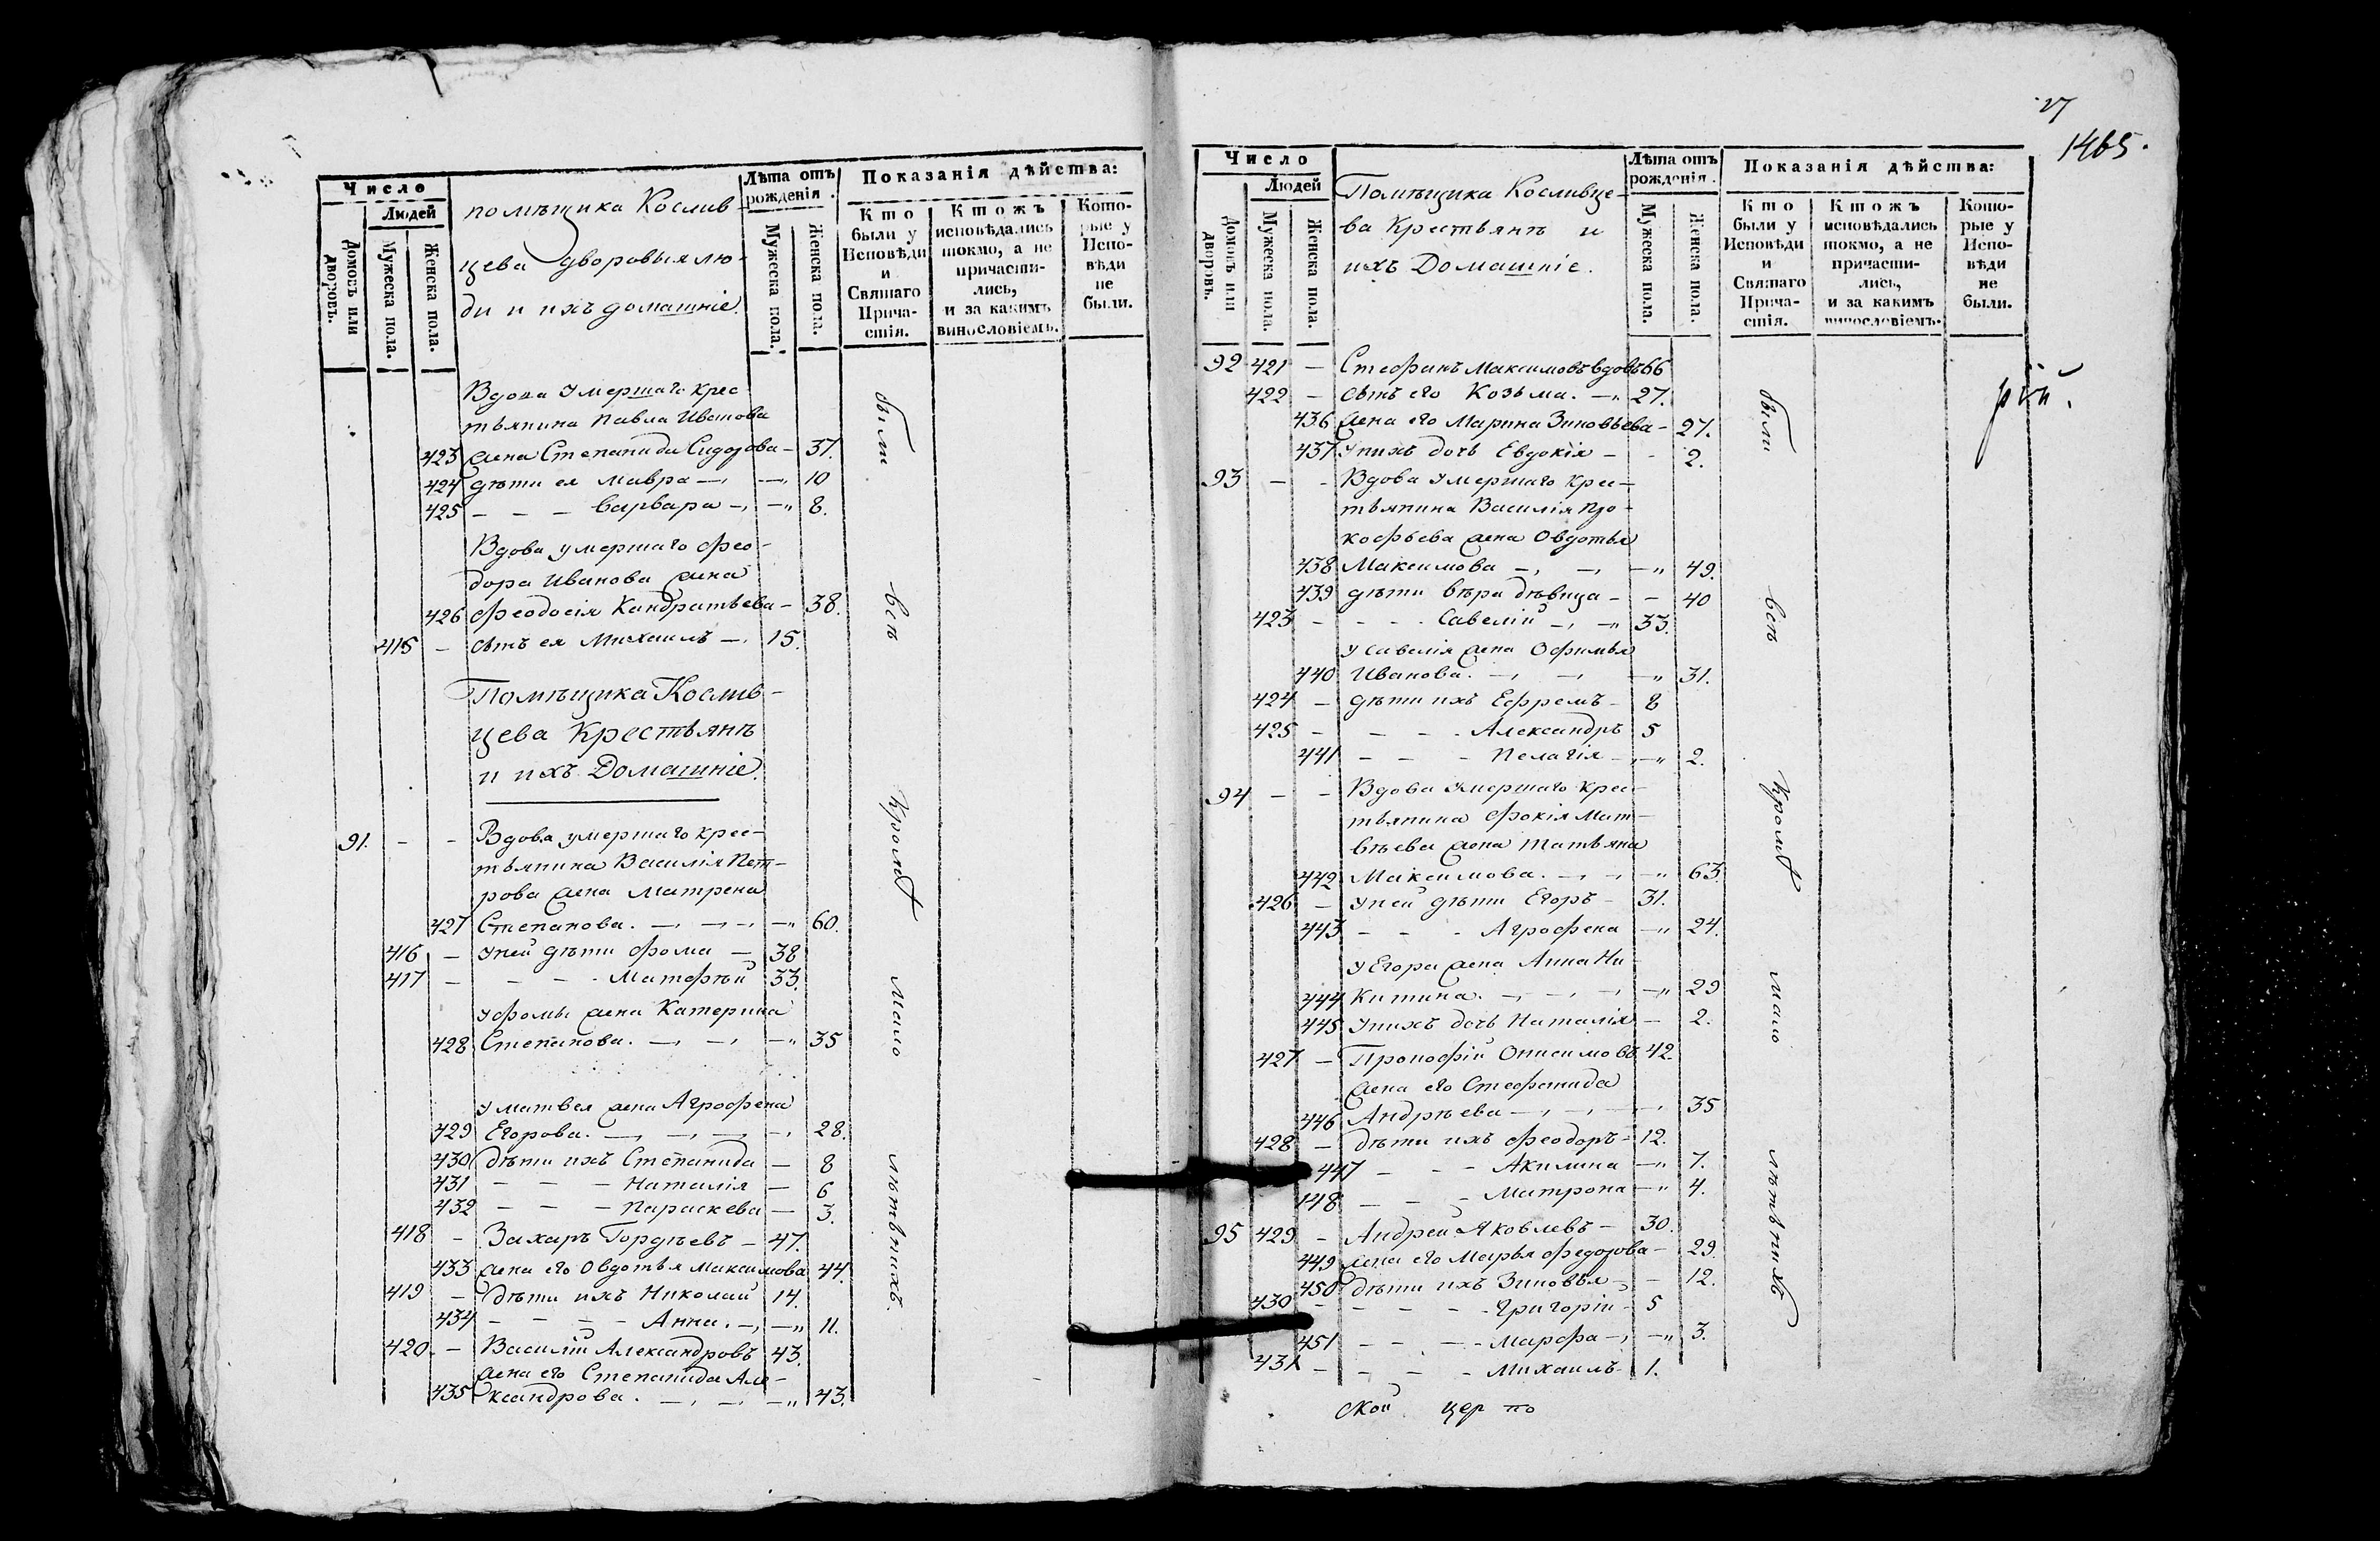 Число
Людей
Домовъ или дворовъ.
Мужеска пола.
Женска пола.
помѣщика Кослив-
цева дворовыя лю-
ди и ихъ домашніе.
Лѣта отъ рожденія.
Мужеска пола.
Женска пола.
Показанія дѣйства:
Кто были у Исповѣди и Святаго Прича-стія.
Ктожъ исповѣдались токмо, а не причасти-лись, и за какимъ винословіемъ.
Кото-рые у Испо-вѣди не были.
Вдова умершаго крес
тьянина Павла Иванова
423 жена Степанида Сидорова - 37.
424 дѣти ея Мавра — 10
425 - - - Варвара - 8.
Вдова умершаго Фео-
дора Иванова жена
426 Феодосія Кандратьева - 38.
415 - сынъ ея Михаилъ - 15.
Помѣщика Кослив-
цева Крестьянъ
и ихъ Домашніе.
91. - - Вдова умершаго крес-
тьянина Василія Пет-
рова жена Матрена
427 Степанова. - - - 60.
416 - у ней дѣти Фома - 38
417 - - - - Матфѣй 33.
у Фомы жена Катерина
428 Степанова. - - - 35
у Матвея жена Агрофена
429 Егорова. - - - - 28.
430 дѣти ихъ Степанида - 8
431 - - - Наталія - 6
432 - - - Параскева - 3.
418 - Захаръ Гордѣевъ - 47.
433 жена его Овдотья Максимова 44.
419 - дѣти ихъ Николай 14.
434 - - - - Анна. - - 11.
420. - Василій Александровъ 43.
жена его Степанида Але-
435 ксандрова. - - - 43.
были
всѣ
Кромѣ
мало
лѣтьнихъ.
27
1465.
Число
Людей
Домовъ или дворовъ.
Мужеска пола.
Женска пола.
Помѣщика Косливце-
ва Крестьянъ и
ихъ Домашніе.
Лѣта отъ рожденія.
Мужеска пола.
Женска пола.
Показанія дѣйства:
Кто были у Исповѣди и Святаго Прича-стія.
Ктожъ исповѣдались токмо, а не причасти-лись, и за какимъ винословіемъ.
Кото-рые у Испо-вѣди не были.
92 421 - Стефанъ Максимовъ вдовъ 66
422 - сынъ его Козьма. - 27.
436 жена его Марина Зиновьева - 27.
437 у нихъ дочь Евдокія - - 2.
93 - - Вдова умершаго крес-
тьянина Василія Про-
кофьева жена Овдотья
438 Максимова - - - 49.
439 дѣти Вѣра дѣвица - - 40
423 - - - - Савелій - - 33.
у Савелія жена Офимья
440 Иванова. - - - 31.
424 - дѣти ихъ Ефремъ - 8
425 - - - - Александръ 5
441 - - - Пелагія - - 2.
94 - - Вдова умершаго крес-
тьянина Фокія Мат-
вѣева жена Татьяна
442 Максимова. - - - 63.
426 - у ней дѣти Егоръ - 31.
443 - - - Агрофена - 24.
у Егора жена Анна Ни-
444 китина. - - - - 29
445 у нихъ дочь Наталія - 2.
427 - Прокофій Онисимовъ 42.
жена его Стефанида
446 Андрѣева - - - - 35
428 - дѣти ихъ Феодоръ - 12.
447 - - - Акилина - 7.
148 - - - Матрона - 4.
95 429 - Андрей Яковлевъ - 30.
449 жена его Марья Федорова - 29.
450 дѣти ихъ Зиновья - - 12.
430 - - - - Григорій - 5
451 - - - - Марфа - - 3.
431 - - - - Михаилъ - 1.
были
всѣ
Кромѣ
мало
лѣтьнихъ
рій.
ской цер по